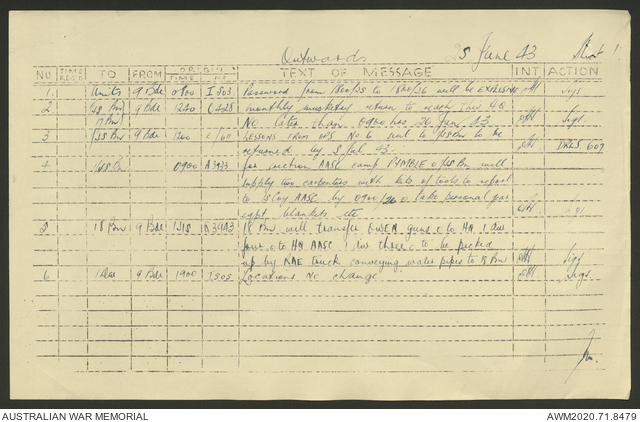 Outwards 25 June 43 Sheet 1
NO TIME REC'D TO FROM ORIGIN TIME NO TEXT OF MESSAGE INT ACTION
1. Units 9 Bde 0900 I503 Password from 1800/25 to 1800/26 will be Sigs
2 9 Bde 1240 monthly return to reach this HQ
No later than 0900 hrs 26 June 43 Sigs
3 9 Bde 1200 LESSONS FROM No 6 sent to be
returned by 5 Jul 43. DRLS 607
4 0900 A3933 for section AASC camp PYMBLE o 18 Bn will
supply two carpenters with kits of tools to report
to Coy AASC by 0900/26 o take personal
eqpt blankets etc
5 18 Bn 9 Bde 1315 18 Bn will transfer OWEN guns o to HQ 1 div
four o to HQ AASC 1 div three o to be picked
up by RAE truck conveying water pipes to 18 Bn Sigs
6 1 Div 9 Bde 1900 I505 Locations No change Sigs
AUSTRALIAN WAR MEMORIAL AWM2020.71.8479